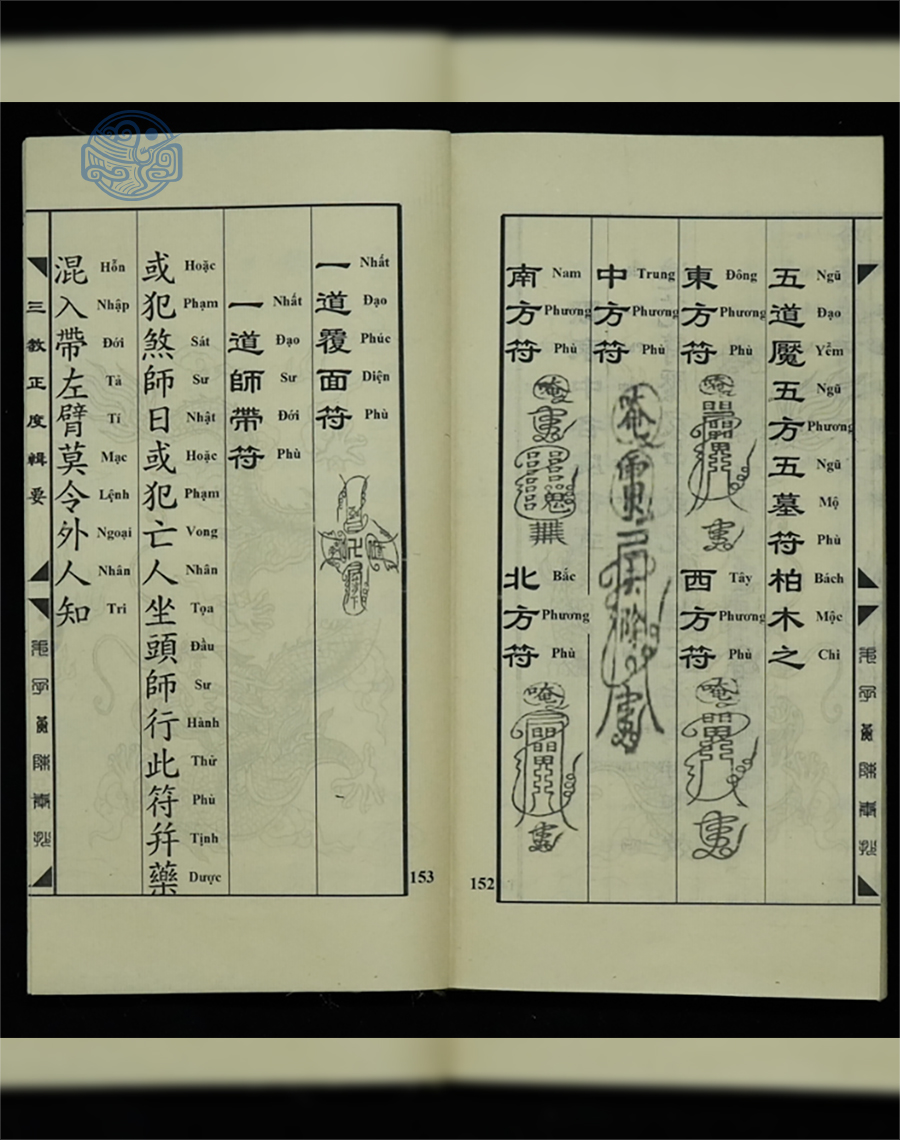 五道魘五方五墓符柏木之
Ngũ Đạo Yểm Ngũ Phương Ngũ Mộ Phù Bách Mộc Chi
東方符
Đông Phương Phù
西方符
Tây Phương Phù
中方符
Trung Phương Phù
南方符
Nam Phương Phù
北方符
Bắc Phương Phù
152
一道覆面符
Nhất Đạo Phúc Diện Phù
一道師帶符
Nhất Đạo Sư Đới Phù
或犯煞師日或犯亡人坐頭師行此符并藥
Hoặc Phạm Sát Sư Nhật Hoặc Phạm Vong Nhân Tọa Đầu Sư Hành Thử Phù Tịnh Dược
混入帶左臂莫令外人知
Hỗn Nhập Đới Tả Tí Mạc Lệnh Ngoại Nhân Tri
三教正度輯要
153